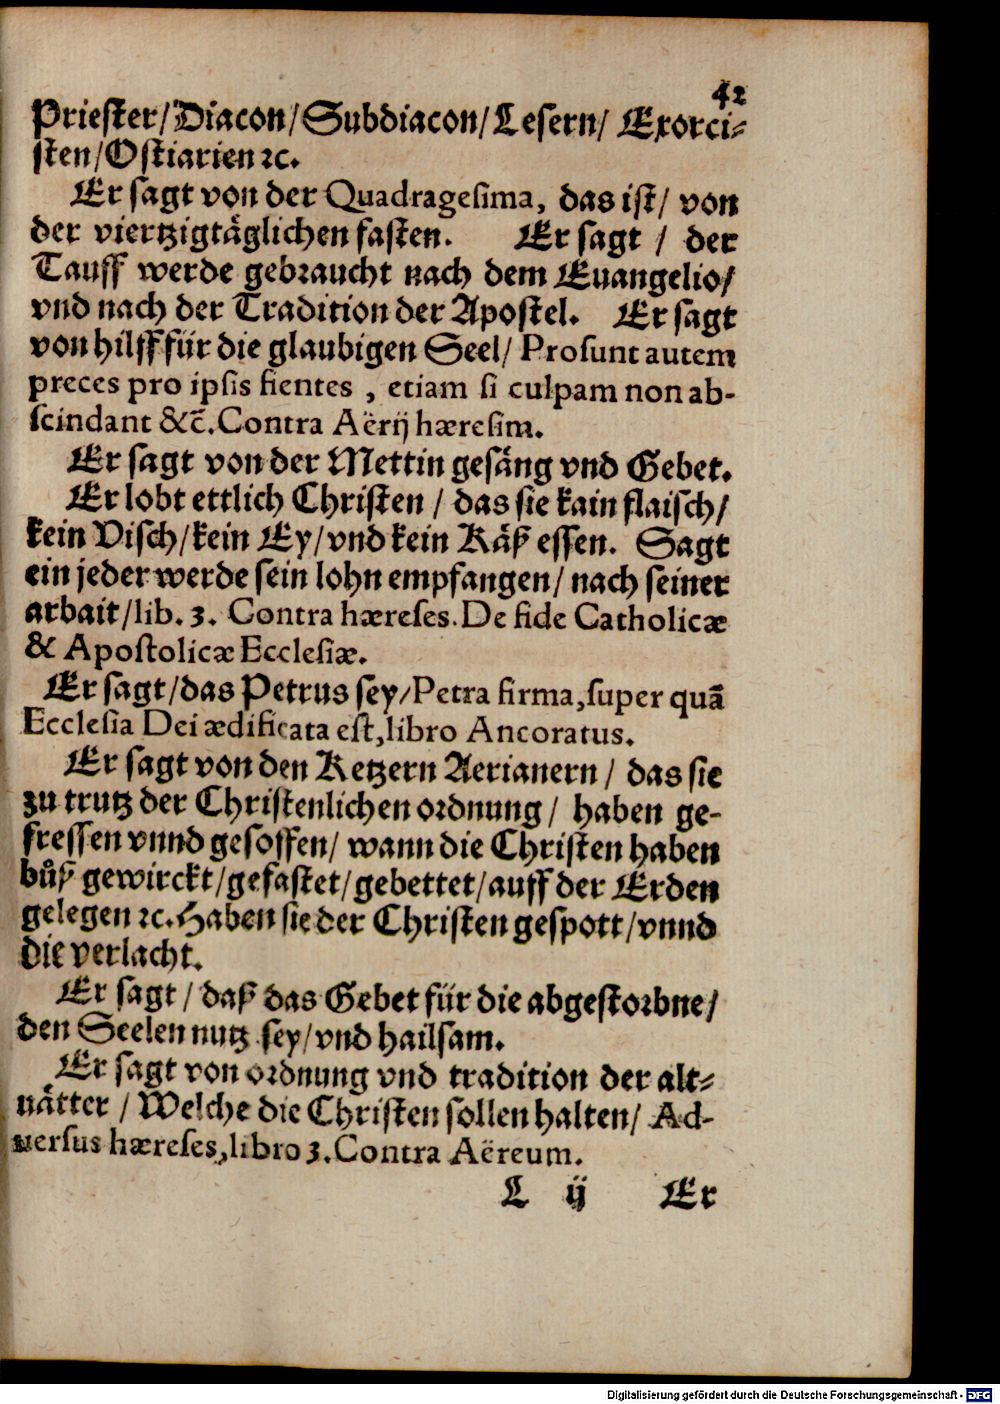 42
Priester/Diacon/Subdiacon/Lesern/ Exorci-
sten/Ostiarien ꝛc.
Er sagt von der Quadragesima, das ist/ von
der viertzigtäglichen fasten. Er sagt / der
Tauff werde gebraucht nach dem Euangelio/
vnd nach der Tradition der Apostel. Er sagt
von hilff für die glaubigen Seel/ Prosunt autem
preces pro ipsis fientes , etiam si culpam non ab-
scindant &c̃. Contra Aërij hæresim.
Er sagt von der Mettin gesäng vnd Gebet.
Er lobt ettlich Christen / das sie kain flaisch/
kein Visch/kein Ey/vnd kein Käß essen. Sagt
ein jeder werde sein lohn empfangen/ nach seiner
arbait/lib. 3. Contra hæreses. De fide Catholicæ
& Apostolicæ Ecclesiæ.
Er sagt/das Petrus sey/Petra firma,super quã
Ecclesia Dei ædificata est,libro Ancoratus.
Er sagt von den Ketzern Aerianern / das sie
zu trutz der Christenlichen ordnung/ haben ge-
fressen vnnd gesoffen/ wann die Christen haben
bůß gewirckt/gefastet/gebettet/auff der Erden
gelegen ꝛc. Haben sie der Christen gespott/vnnd
die verlacht.
Er sagt/ daß das Gebet für die abgestorbne/
den Seelen nutz sey/vnd hailsam.
Er sagt von ordnung vnd tradition der alt-
uätter / Welche die Christen sollen halten/ Ad-
uersus hæreses,libro 3. Contra Aëreum.
L ij Er
Digitalisierung gefördert durch die Deutsche Forschungsgemeinschaft - DFG